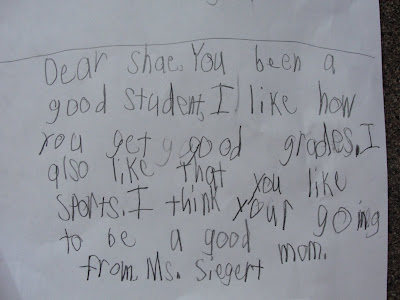 Dear Shae, You been a
good student, I like how
you get good grades. I
also like that you like
sports. I think your going
to be a good mom.
from Ms. Siegert